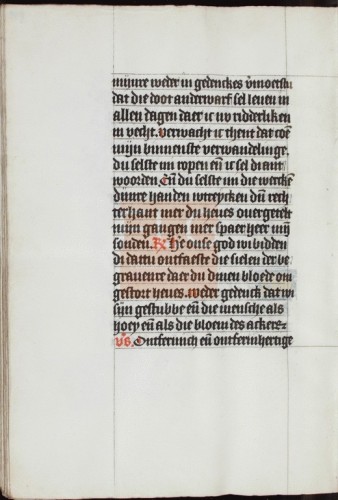 mijnre weder in gedenckes v̄moetstu
dat die doot anderwarf sel leuen in
allen dagen daer ic in ridderliken
in vecht. verwacht ic thent dat coē
mijn binnenste verwandelinge.
du selste mi ropen eñ ic sel di ant
woorden Eñ du selste mi die wercke
dijnre handen wtreycken dijn rech
terhant mer du heues ouergetelt
mijn gangen mer spaer heer mijn
sonden. Here onse god wi bidden
di dattu ontfaeste die sielen der be
grauenre daer du dinen bloede om
gestort heues. weder gedenck dat wi
sijn gestubbe eñ die mensche als
hoey eñ als die bloem des ackers
v̄s. Ontfermich eñ ontfermhertige